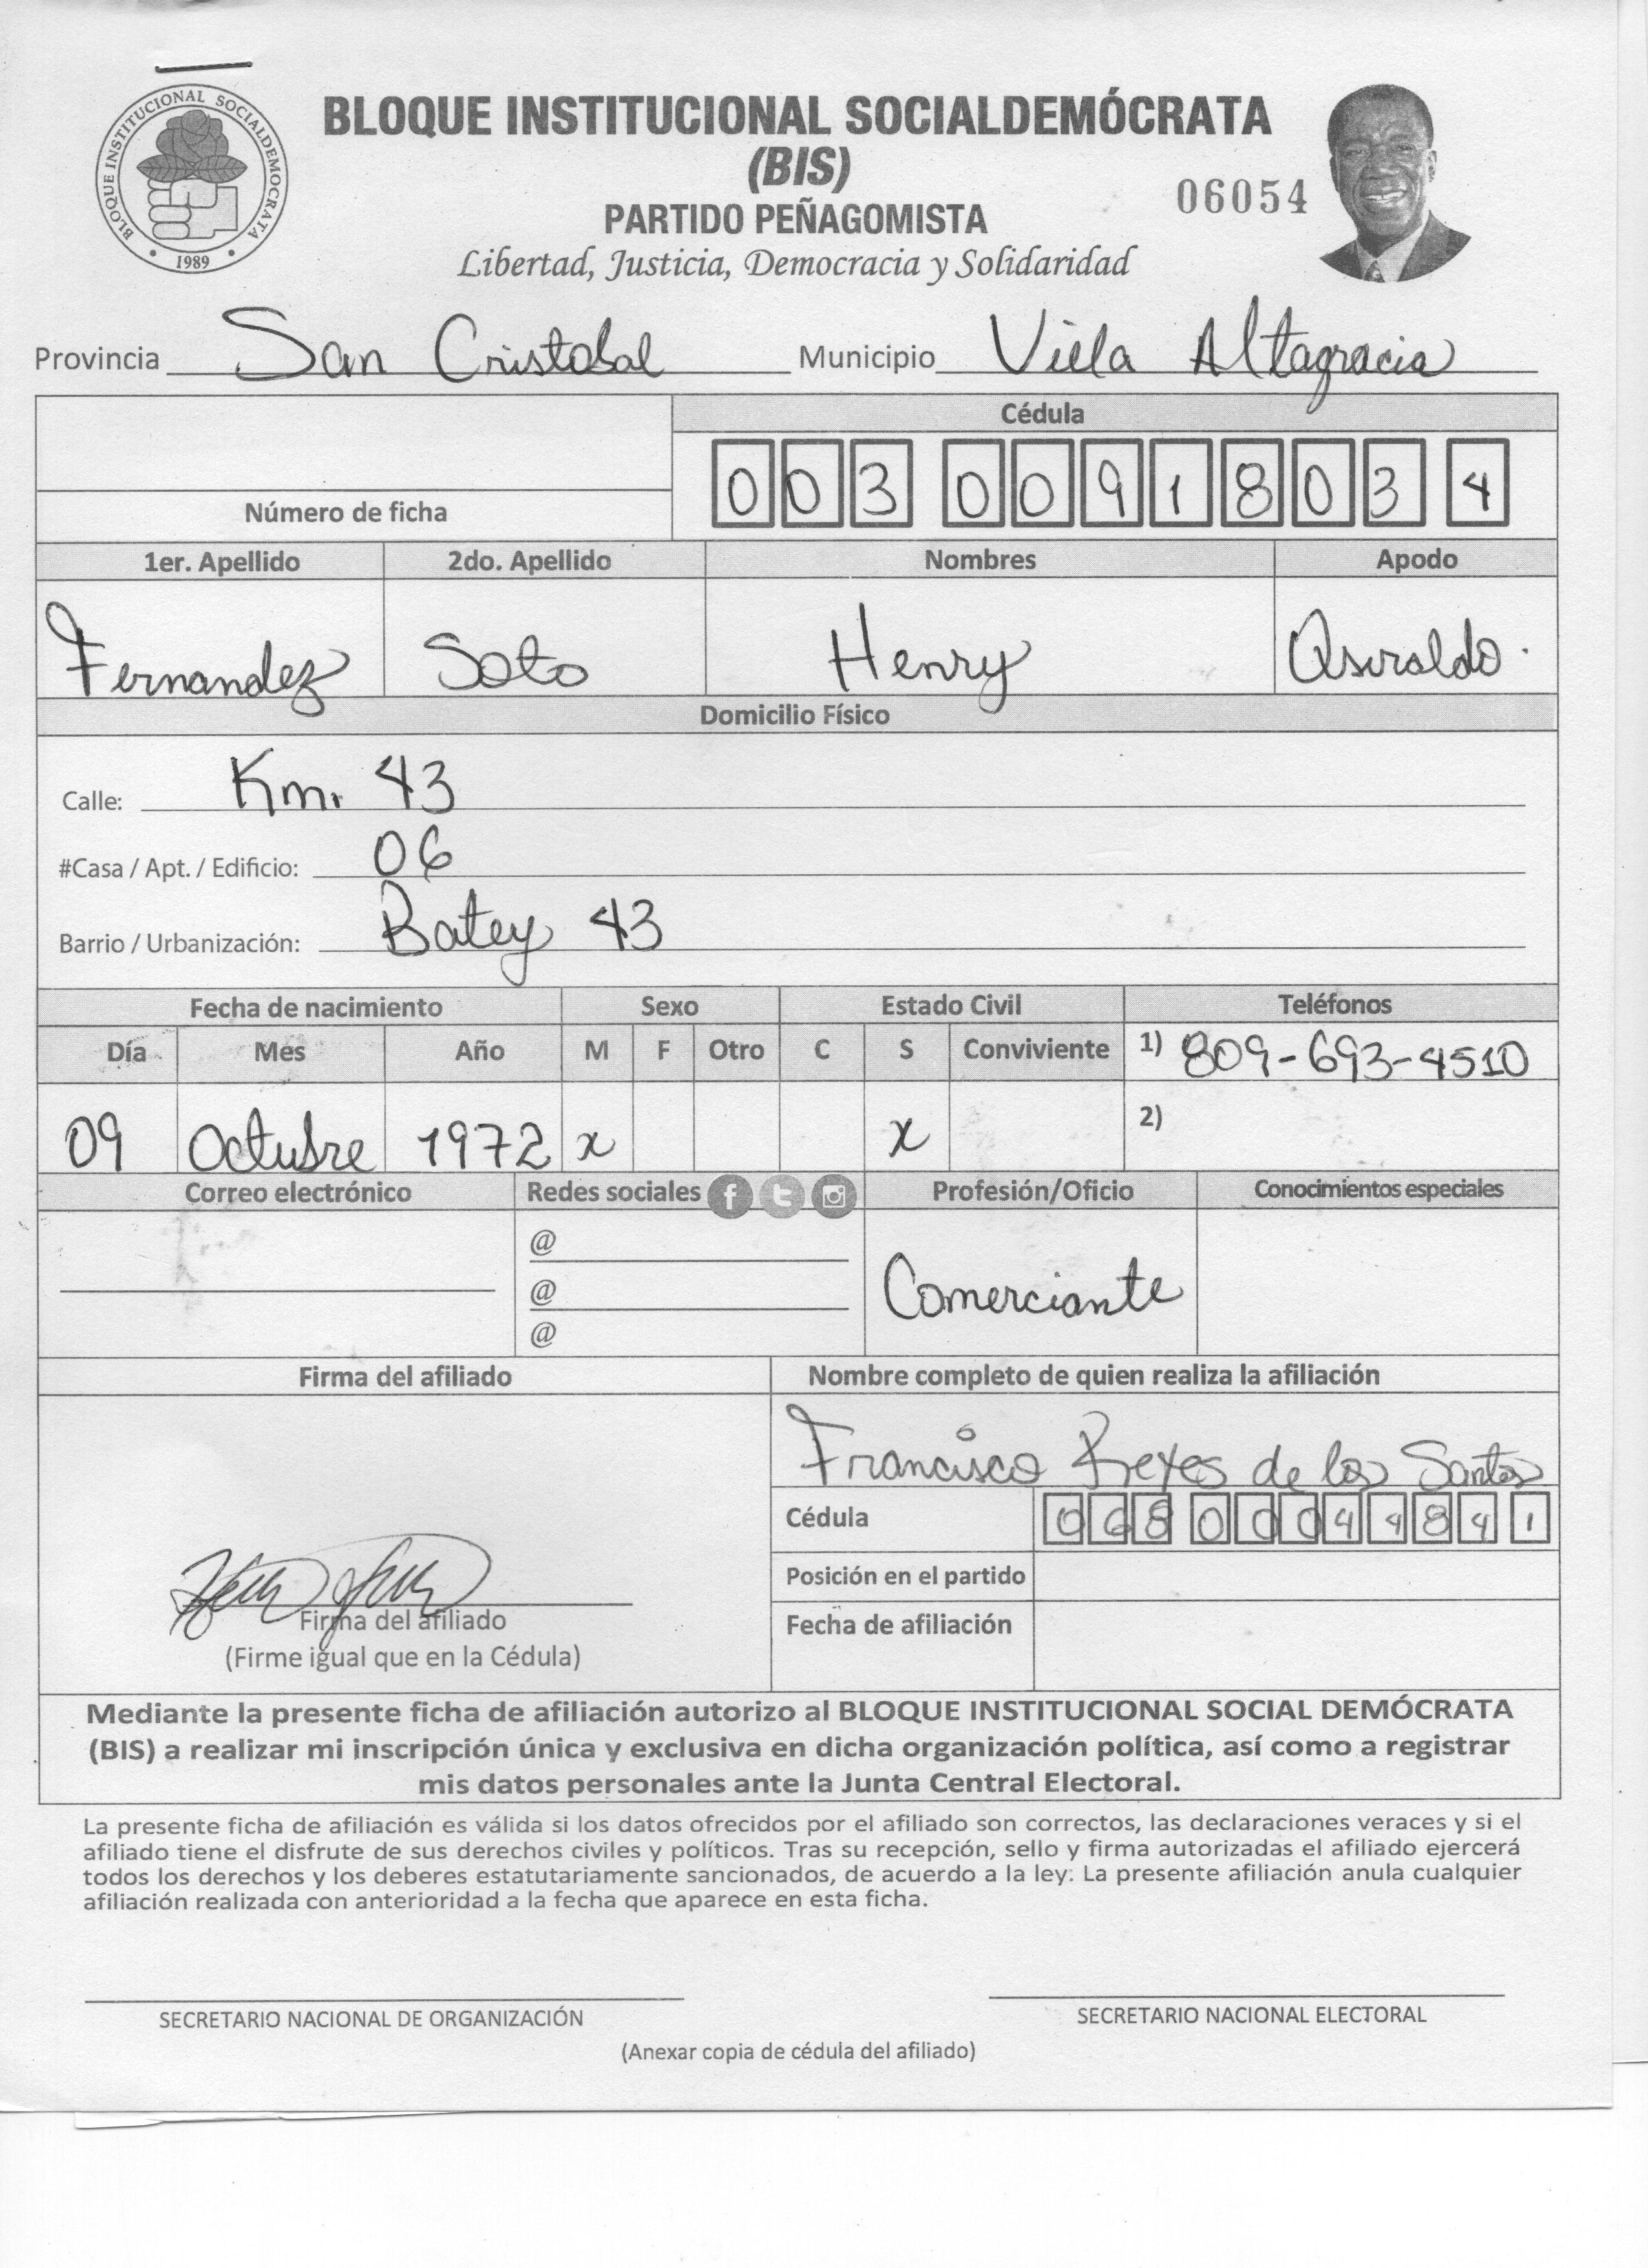 BLOQUE INSTITUCIONAL SOCIALDEMÓCRATA
(BIS)
PARTIDO PEÑAGOMISTA
Libertad, Justicia, Democracia y Solidaridad
BLOQUE INSTITUCIONAL SOCIALDEMOCRATA
1989
06054
Provincia San Cristobal Municipio Villa Altagracia
Cédula
003 0091803 4
Número de ficha
1er. Apellido 2do. Apellido Nombres Apodo
Fernandez Soto Henry Osvaldo
Domicilio Físico
Calle: Km. 43
#Casa / Apt. / Edificio: 06
Barrio / Urbanización: Batey 43
Fecha de nacimiento Sexo Estado Civil Teléfonos
Día Mes Año M F Otro C S Conviviente 1) 809-693-4510
09 Octubre 1972 x x 2)
Correo electrónico Redes sociales f t Profesión/Oficio Conocimientos especiales
@
@
@
Comerciante
Firma del afiliado Nombre completo de quien realiza la afiliación
Francisco Reyes de los Santos
Cédula 068 0004484 1
Posición en el partido
Fecha de afiliación
Firma del afiliado
(Firme igual que en la Cédula)
Mediante la presente ficha de afiliación autorizo al BLOQUE INSTITUCIONAL SOCIAL DEMÓCRATA
(BIS) a realizar mi inscripción única y exclusiva en dicha organización política, así como a registrar
mis datos personales ante la Junta Central Electoral.
La presente ficha de afiliación es válida si los datos ofrecidos por el afiliado son correctos, las declaraciones veraces y si el
afiliado tiene el disfrute de sus derechos civiles y políticos. Tras su recepción, sello y firma autorizadas el afiliado ejercerá
todos los derechos y los deberes estatutariamente sancionados, de acuerdo a la ley. La presente afiliación anula cualquier
afiliación realizada con anterioridad a la fecha que aparece en esta ficha.
SECRETARIO NACIONAL DE ORGANIZACIÓN SECRETARIO NACIONAL ELECTORAL
(Anexar copia de cédula del afiliado)